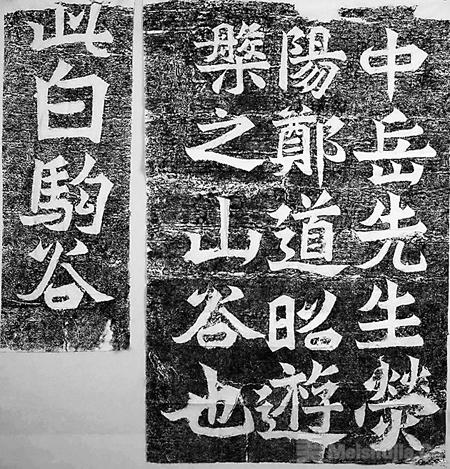 中岳先生熒
陽鄭道昭遊
槃之山谷也
此白駒谷
Meishujia